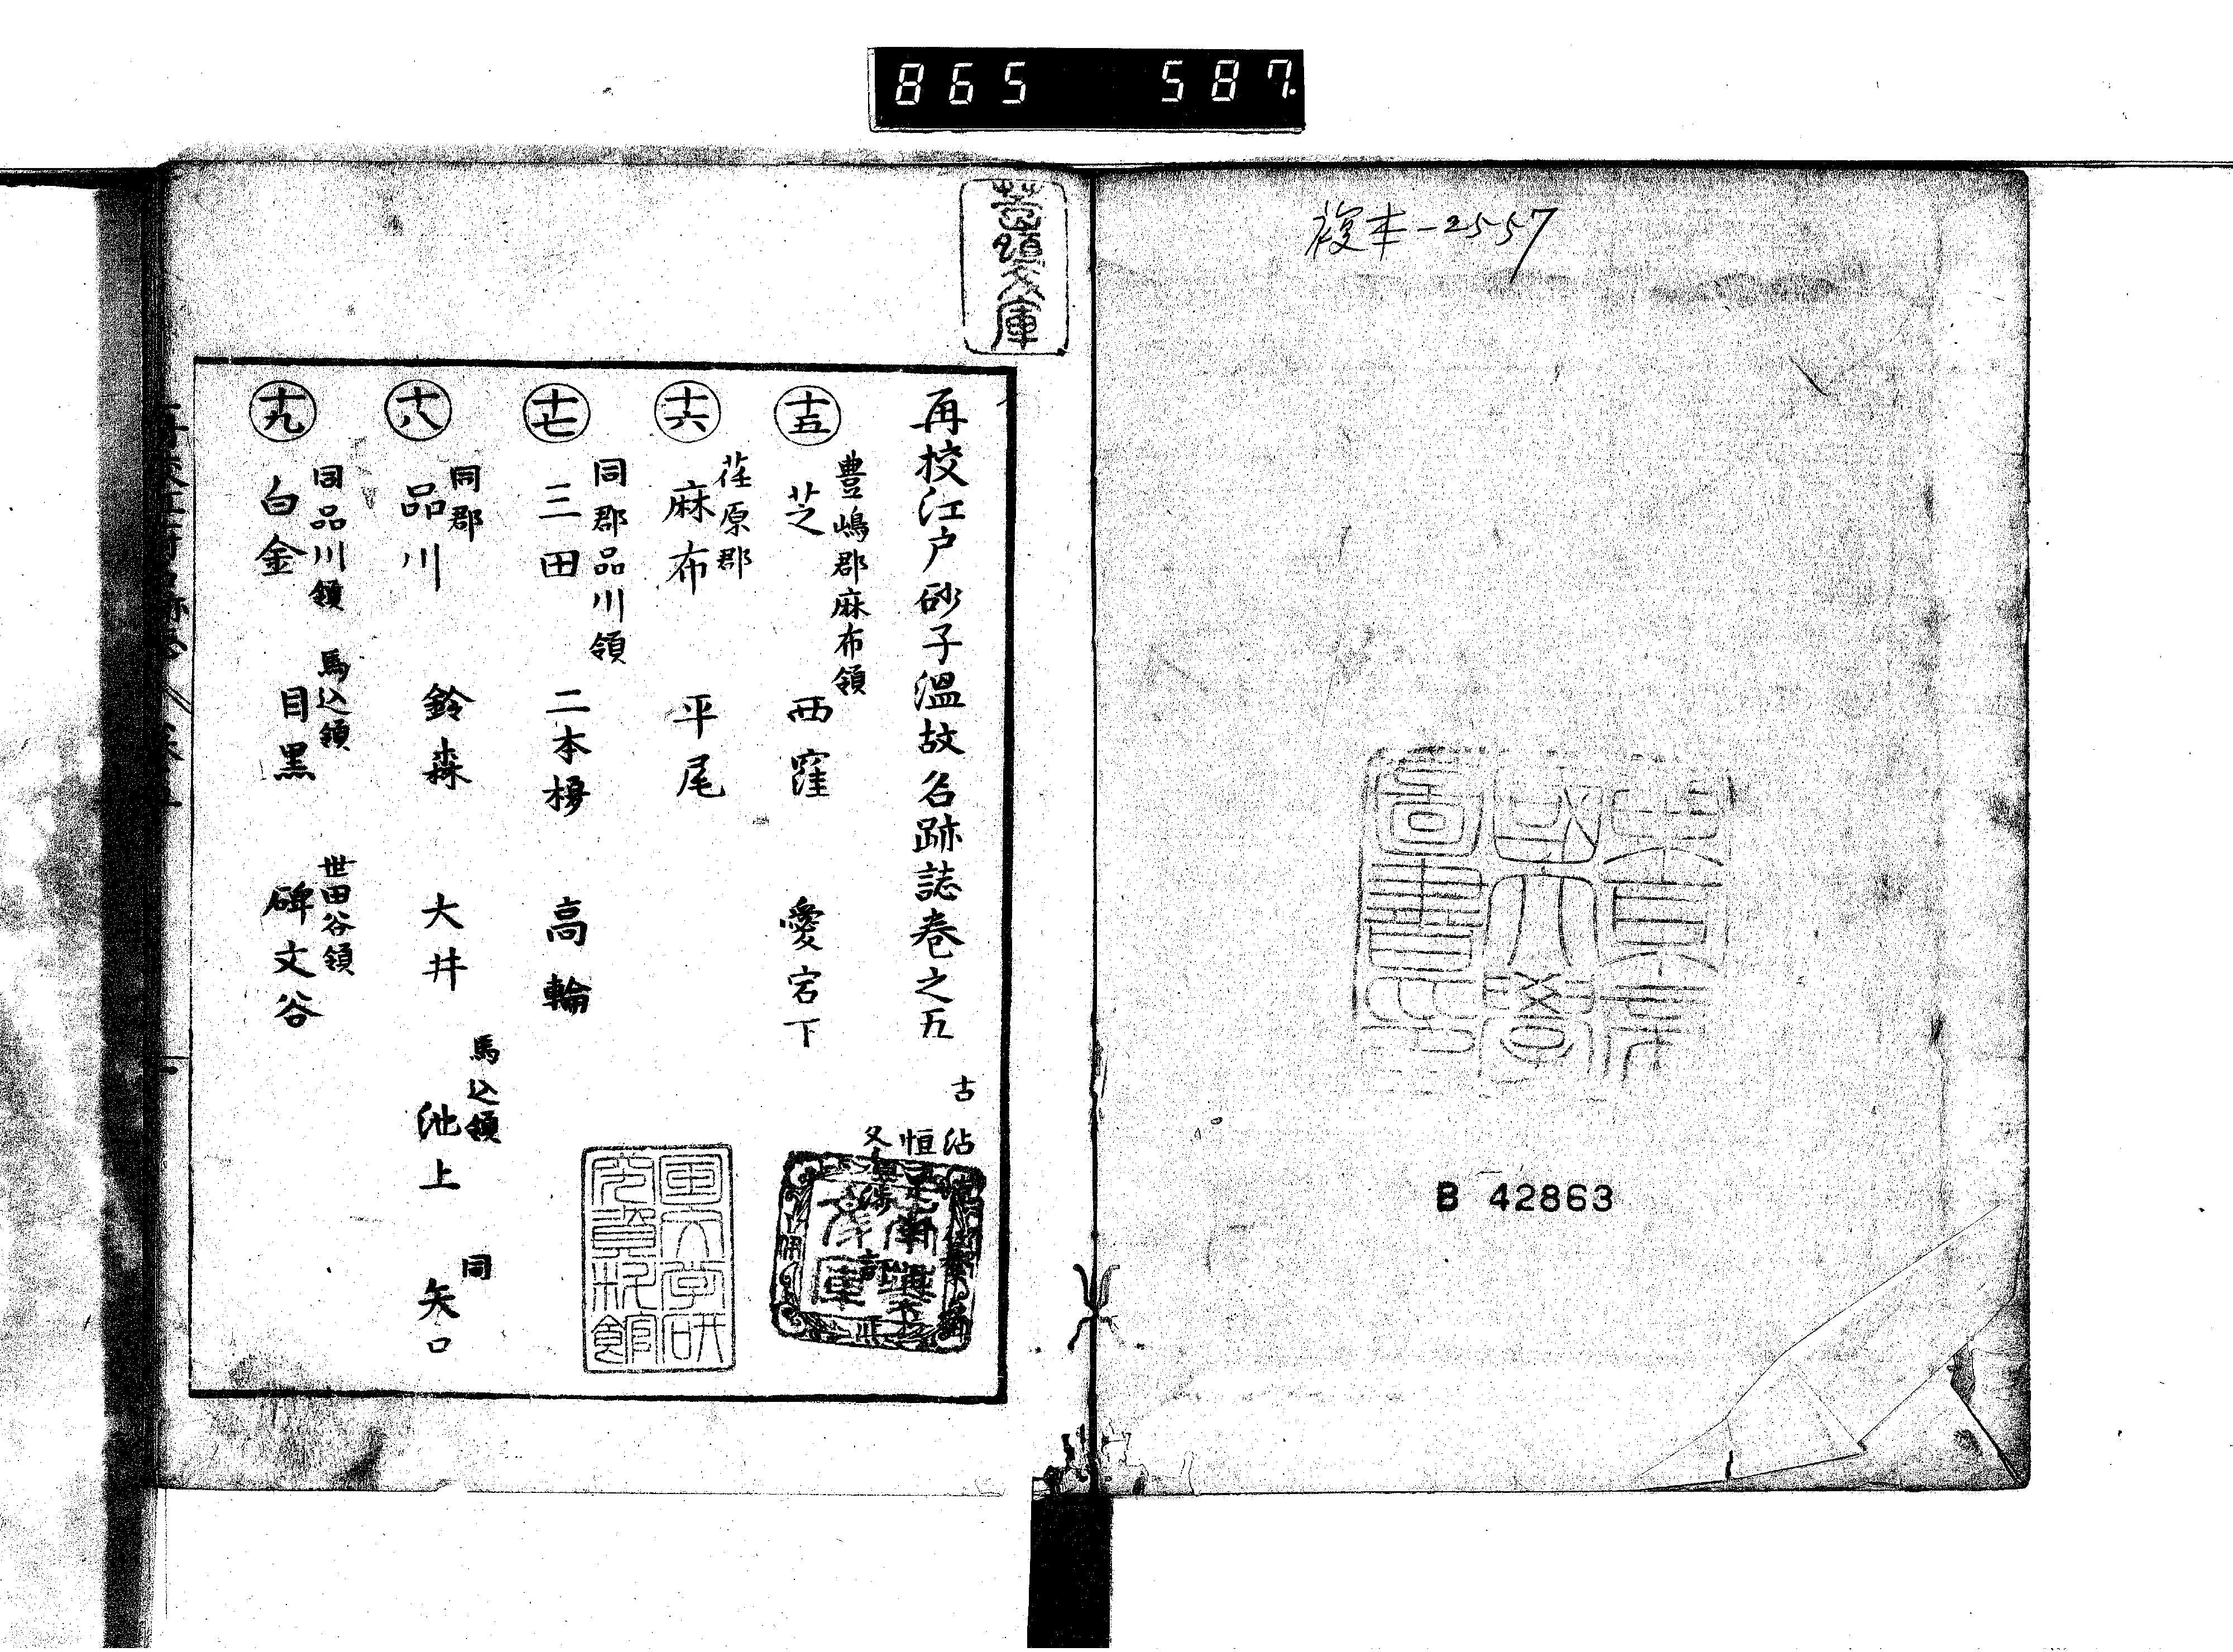 865 587
複本-2557
東京帝國大學圖書印
B 42863
再校江戸砂子温故名跡誌巻之五
古
沾
恒
豊嶋郡麻布領
十五 芝 西窪 愛宕下
荏原郡
十六 麻布 平尾
同郡品川領
十七 三田 二本榎 高輪
同郡 馬込領 同
十八 品川 鈴森 大井 池上 矢口
同品川領 馬込領 世田谷領
十九 白金 目黒 碑文谷
国文学研究資料館